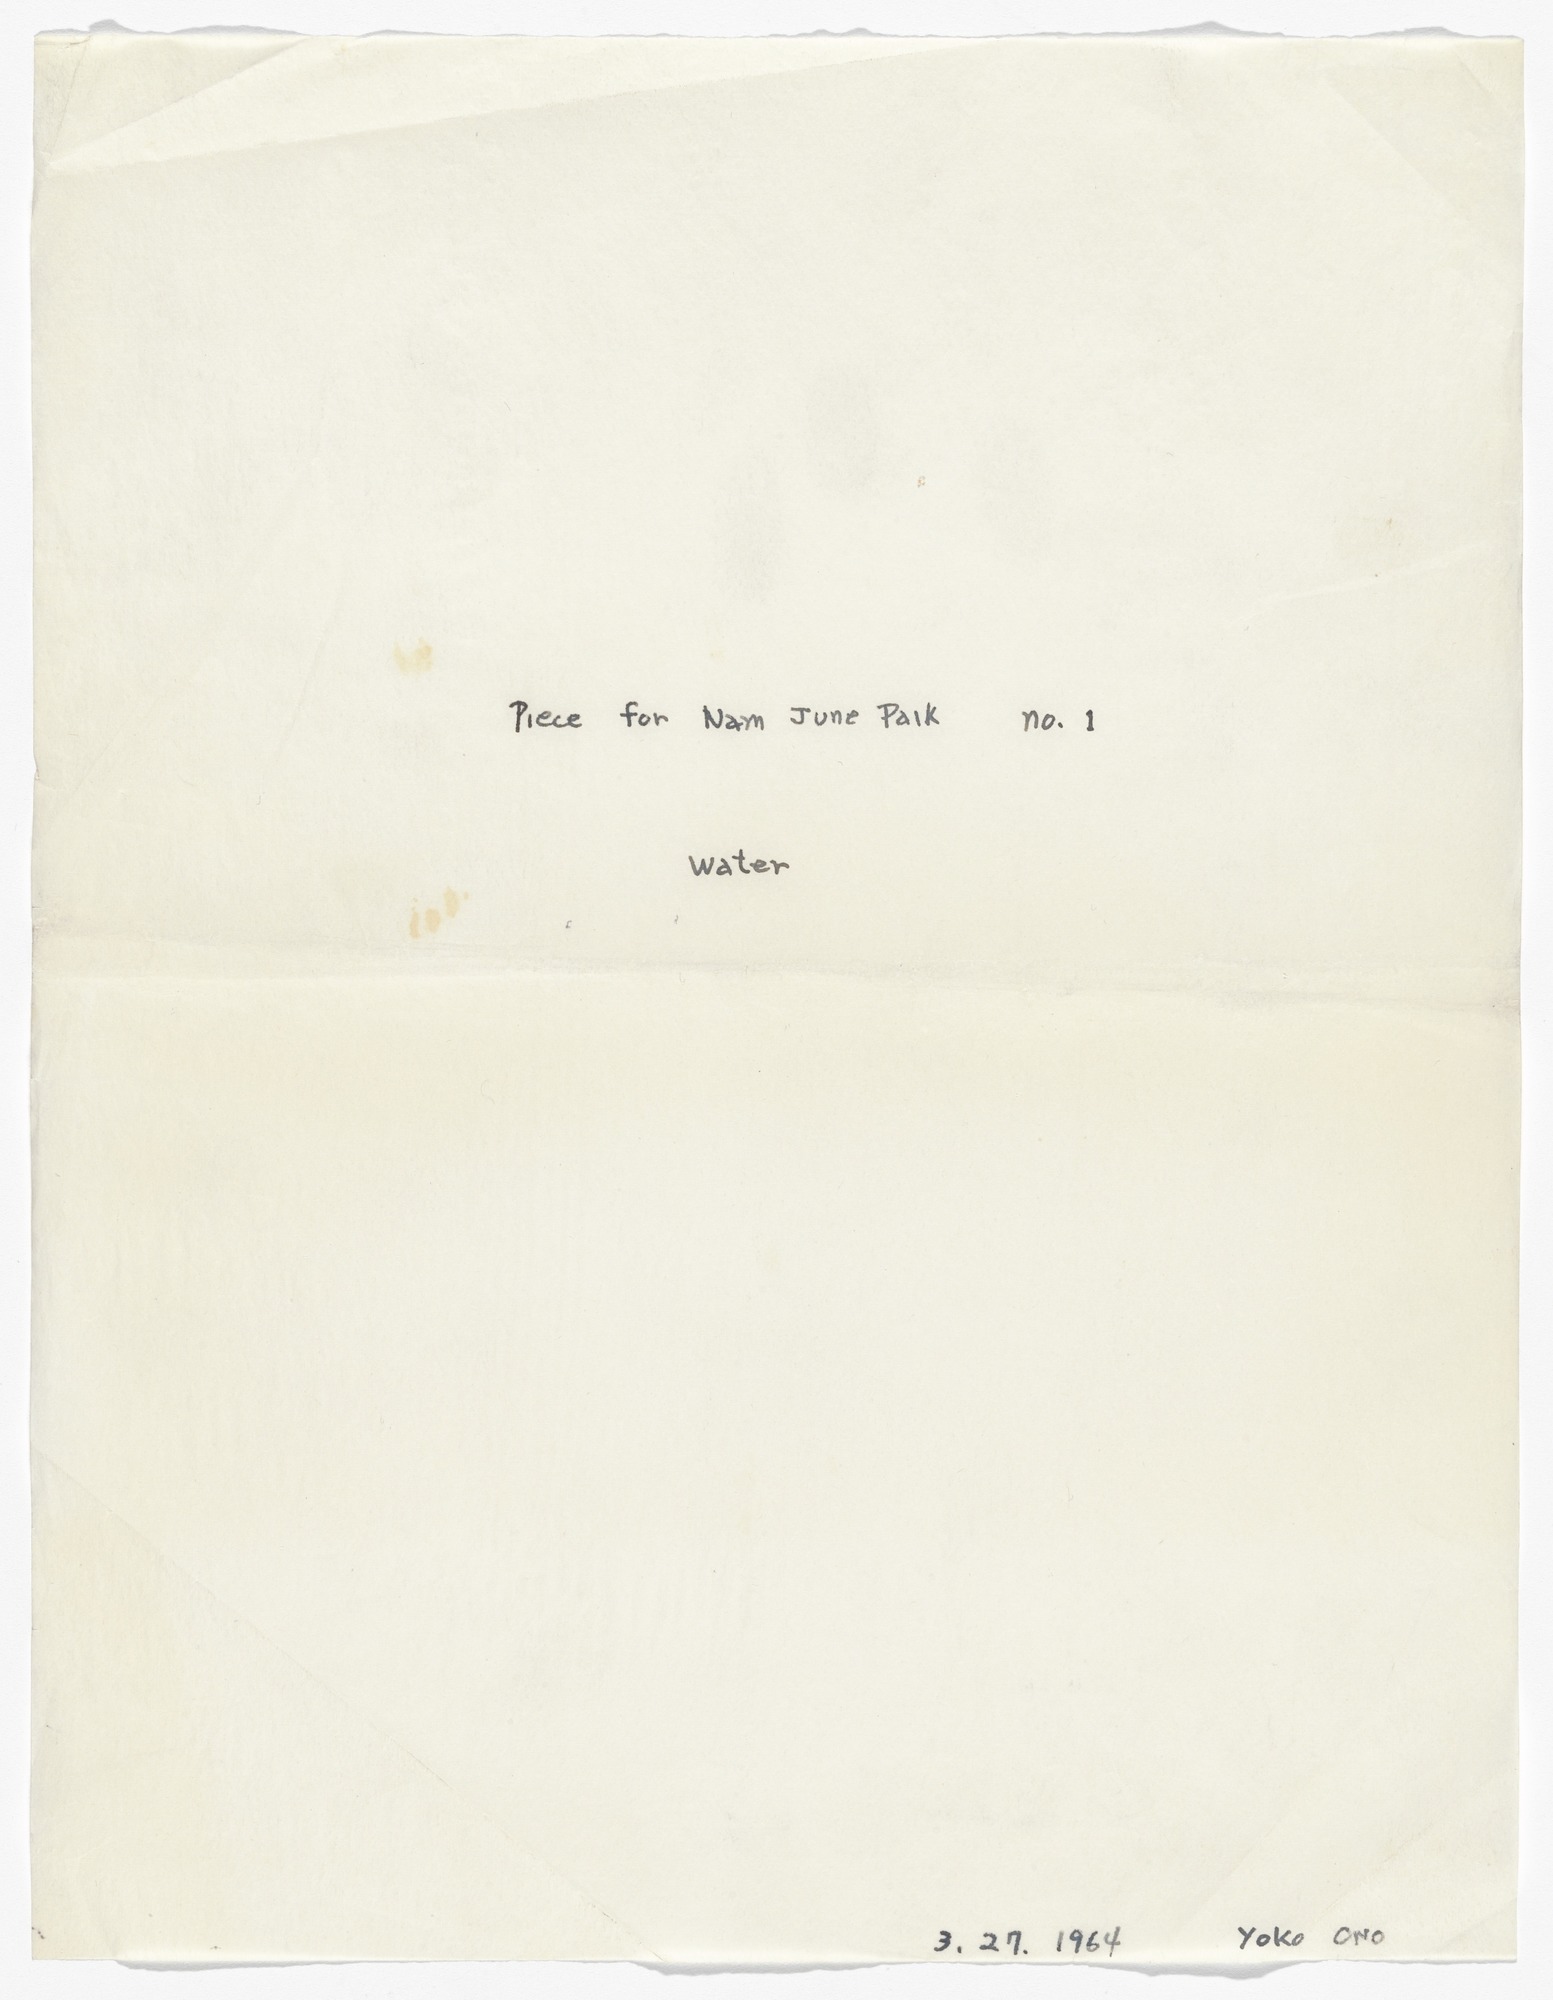 Piece for Nam June Paik no. 1
water
3. 27. 1964 Yoko ONO